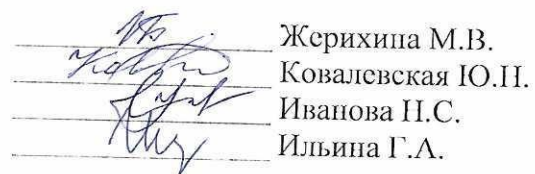 Жерихина М.В.
Ковалевская Ю.Н.
Иванова Н.С.
Ильина Г.А.